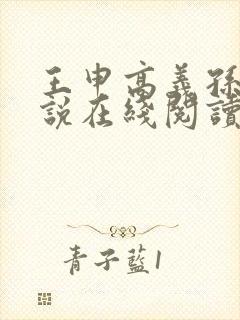 王申高義孫
說在綫閱讀
青子藍1